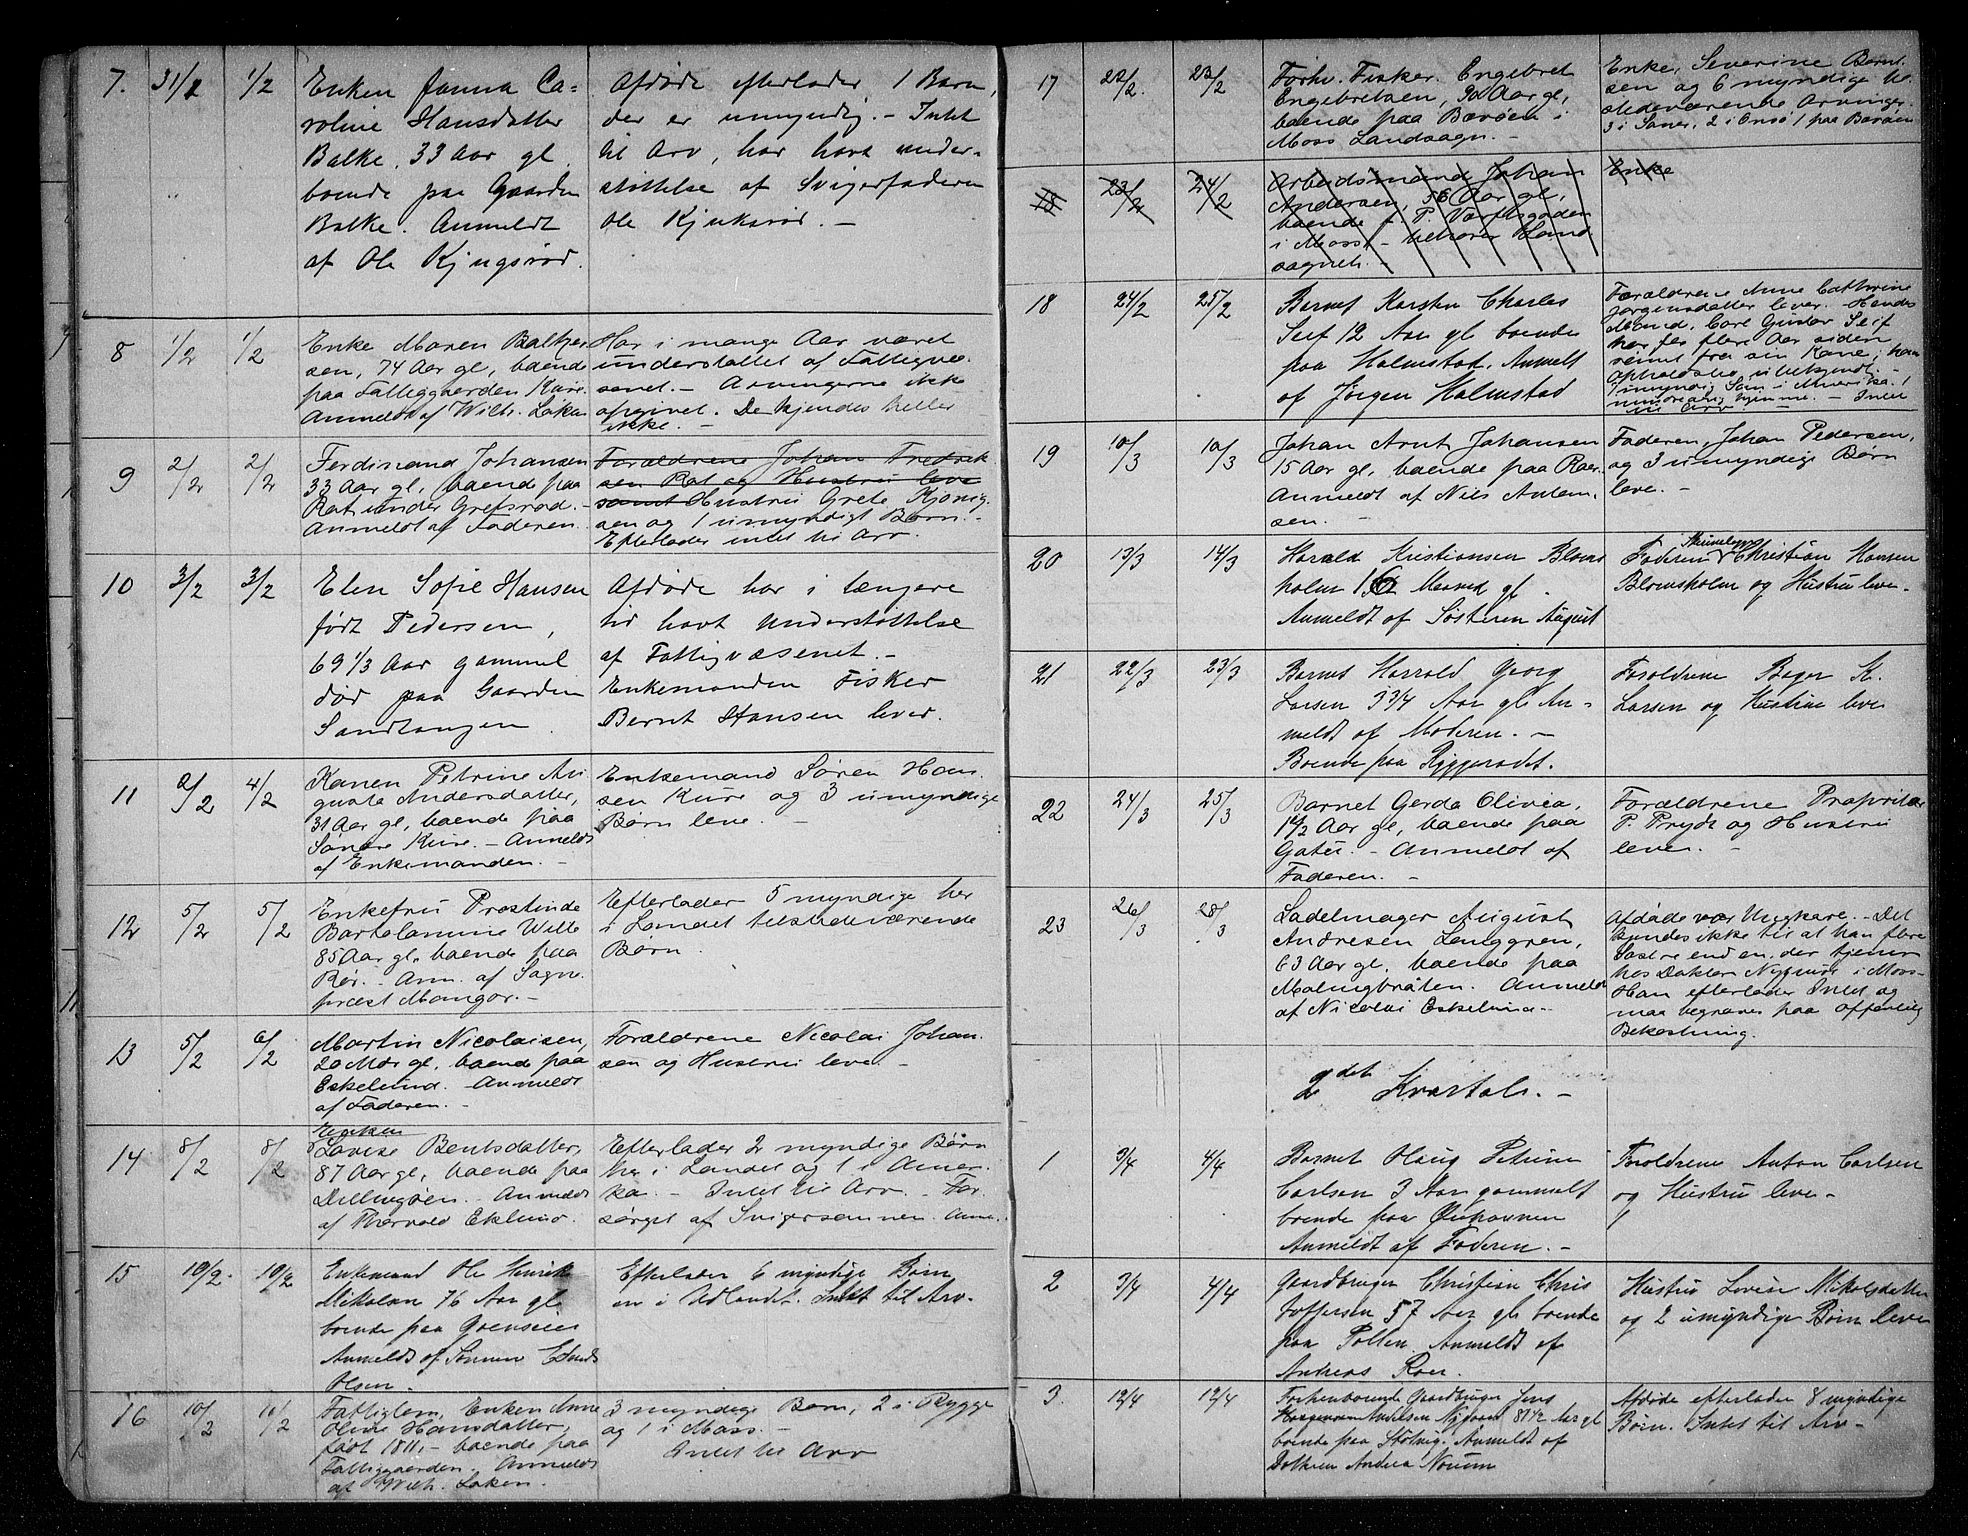 7. 31/1 1/2 Enken Janna Ca-
roline Hansdatter
Balke, 33 Aar gl.
boende paa Gaarden
Balke. Anmeldt
af Ole Kjugsrød.
Afdøde efterlader 1 Barn,
der er umyndig. - Intet
til Arv, har havt under-
støttelse af Svigerfaderen
Ole Kjuksrød. -
8 1/2 1/2 Enke Maren Baltzer
sen, 74 Aar gl, boende
paa Fattiggaarden Kure.
Anmeldt af Wilh. Løken
Har i mange Aar været
understøttet af Fattigvæ-
senet. - Arvingerne ikke
opgivet. De kjendes heller
ikke. -
9 2/2 2/2 Ferdinand Johansen
33 Aar gl, boende paa
Rat under Gretsrød. -
Anmeldt af Faderen.
Forældrene Johan Fredrik
sen Rat og Hustru leve
samt Hustru Grete Kjønig
sen og 1 umyndigt Barn. -
Efterlader intet til Arv.
10 3/2 3/2 Elen Sofie Hansen
født Pedersen,
69 1/3 Aar gammel
død paa Gaarden
Sandtangen.
Afdøde har i længere
tid havt understøttelse
af Fattigvæsenet. -
Enkemanden Fisker
Bernt Hansen lever.
11 2/2 4/2 Konen Petrine Au
gusta Andersdatter,
31 Aar gl, boende paa
Søndre Kure. - Anmeldt
af Enkemanden. -
Enkemand Søren Han-
sen Kure og 3 umyndige
Børn leve. -
12 5/2 5/2 Enkefru Prostinde
Bartolamine Wille
85 Aar gl, boende paa
Rør. - Anm. af Sogne-
præst Mangor. -
Efterlader 5 myndige her
i Landet tilstedeværende
Børn.
13 5/2 6/2 Martin Nicolaisen,
20 Mdr gl, boende paa
Eskelund. - Anmeldt
af Faderen. -
Forældrene Nicolai Johan-
sen og Hustru leve. -
14 8/2 8/2 Enken
Lovise Bentsdatter,
87 Aar gl, boende paa
Dillingøen. - Anmeldt
af Thorvald Eklund.
Efterlader 2 myndige Børn
her i Landet og 1 i Amer-
ka. - Intet til Arv. - For
sørget af Svigersønnen.
15 10/2. 10/2 Enkemand Ole Henrik
Mikolsen 76 Aar gl.
boende paa
Anmeldt af Sønnen
Olsen.
Efterlader 6 myndige Børn
en i Udlandet. Intet til Arv.
16 10/2 11/2 Fattiglem, Enken Anne
Oline Hansdatter,
født 1811. - boende paa
Fattiggaarden. Anmeldt
af Wilh. Løken. -
3 myndige Børn, 2 i Rygge
og 1 i Moss. -
Intet til Arv
17 22/2. 23/2 Forhv. Fisker. Engebret
Engebretsen, 90 Aar gl,
boende paa Bævøen i
Moss Landsogn. -
Enke, Severine Bernt-
sen og 6 myndige til
stedeværende Arvinger.
3 i Saner, 2 i Onsø 1 paa Bevøen
18 23/2 24/2 Arbeidsmand Johan
Andersen, 56 Aar gl,
boende i P. Værftsgaden
i Moss - tilhører Land
sognet. -
Enke
18 24/2 25/2 Barnet Karsten Charles
Seif 12 Aar gl boende
paa Holmstad. Anmelt
af Jørgen Holmstad
Forældrene Anne Cathrine
Jørgensdatter lever. Hendes
Mand, Carl Gustav Seif
har for flere Aar siden
rømt fra sin Kone; hans
Opholdssted ubekjendt. -
1 myndig Søn i Amerika. 1
mindreaarig hjemme. - Intet
til Arv -
19 10/3 10/3 Johan Arnt Johansen
15 Aar gl, boende paa Roer.
Anmeldt af Nils Antom.
sen. -
Faderen, Johan Pedersen,
og 3 umyndige Børn
leve. -
20 13/3 14/3 Harald Kristiansen Bloms
holm 16 Maaned gl.
Anmeldt af Søsteren August
Faderen Christian Hansen
Blomsholm og Hustru leve.
21 22/3 23/3 Barnet Harrald Georg
Larsen 3 3/4 Aar gl An-
meldt af Moderen. -
Boende paa Ryggerødet.
Forældrene Bager K.
Larsen og Hustru leve
22 24/3 25/3 Barnet Gerda Olivia,
1 1/2 Aar gl, boende paa
Gatu. - Anmeldt af
Faderen. -
Forældrene Propritær
P. Prydz og Hustru
lever. -
23 26/3 28/3 Sadelmager August
Andresen Lenggren,
63 Aar gl. boende paa
Malingbråten. Anmeldt
af Nicolai Eskelund. -
Afdøde var Ungkare. - Det
kendes ikke til at han flere
Søstre end en, der tjener
hos Doktor Nyquist i Moss
Han efterlader Intet og
maa begraves paa offentlig
Bekostning.
2det Kvartal. -
1 3/4 4/4 Barnet Haug Petrine
Carlsen 3 Aar gammelt
boende paa Ørehavnen
Anmeldt af Faderen. -
Forældrene Anton Carlsen
og Hustru leve -
2 3/4 4/4 Gaardbruger Christian Chris
toffersen 57 Aar gl boende
paa Pollen. Anmeldt af
Andreas Roer.
Hustru Lovise Mikolsdatter
og 2 umyndige Børn leve
3. 12/4 12/4 Forhenværende Gaardbruger Jens
81 1/2 Aar gl
boende paa Støtvig. Anmeldt af
Datteren Andrea
Afdøde efterlader 8 myndige
Børn. Intet til Arv -